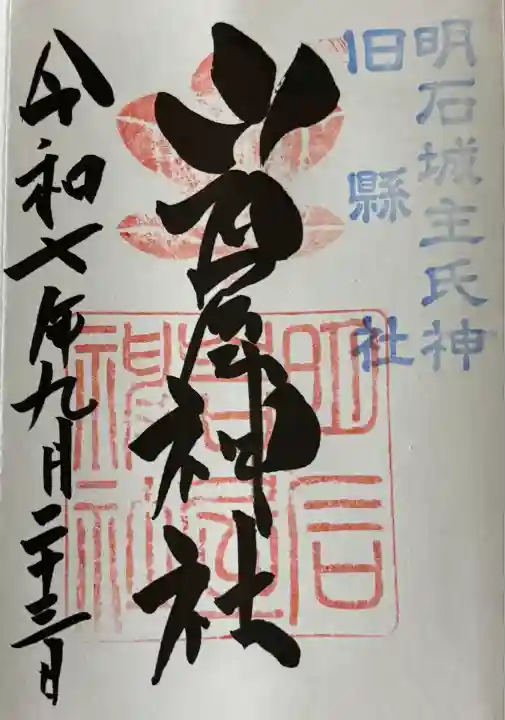 明石城主氏神
旧縣社
岩屋神社
明石
岩屋
神社
令和七年九月二十三日